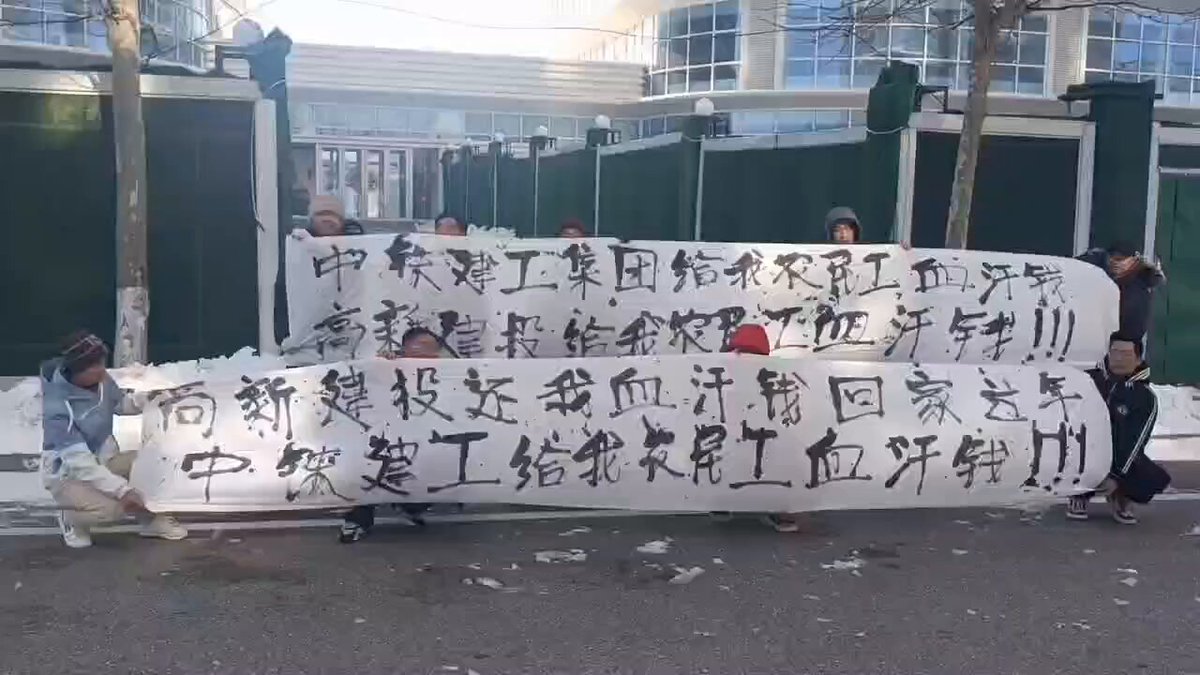 中铁建工集团给我农民工血汗钱
高新建投给我农民工血汗钱!!!
高新建投还我血汗钱回家过年
中铁建工给我农民工血汗钱!!!